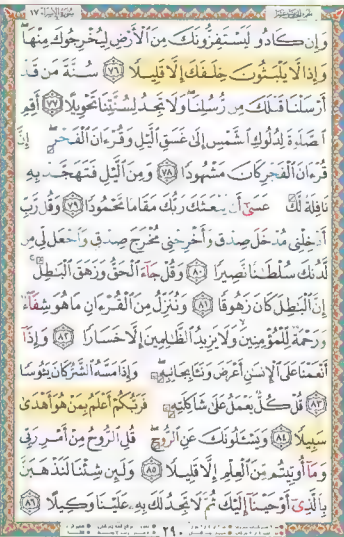 سُورَةُ الإِسْرَاءِ ١٧
وَإِن كَادُوا۟ لَيَسْتَفِزُّونَكَ مِنَ ٱلْأَرْضِ لِيُخْرِجُوكَ مِنْهَا
وَإِذًا لَّا يَلْبَثُونَ خِلَٰفَكَ إِلَّا قَلِيلًا ٧٦ سُنَّةَ مَن قَدْ
أَرْسَلْنَا قَبْلَكَ مِن رُّسُلِنَا وَلَا تَجِدُ لِسُنَّتِنَا تَحْوِيلًا ٧٧ أَقِمِ
ٱلصَّلَوٰةَ لِدُلُوكِ ٱلشَّمْسِ إِلَىٰ غَسَقِ ٱلَّيْلِ وَقُرْءَانَ ٱلْفَجْرِ إِنَّ
قُرْءَانَ ٱلْفَجْرِ كَانَ مَشْهُودًا ٧٨ وَمِنَ ٱلَّيْلِ فَتَهَجَّدْ بِهِۦ
نَافِلَةً لَّكَ عَسَىٰٓ أَن يَبْعَثَكَ رَبُّكَ مَقَامًا مَّحْمُودًا ٧٩ وَقُل رَّبِّ
أَدْخِلْنِى مُدْخَلَ صِدْقٍ وَأَخْرِجْنِى مُخْرَجَ صِدْقٍ وَٱجْعَل لِّى مِن
لَّدُنكَ سُلْطَٰنًا نَّصِيرًا ٨٠ وَقُلْ جَآءَ ٱلْحَقُّ وَزَهَقَ ٱلْبَٰطِلُ
إِنَّ ٱلْبَٰطِلَ كَانَ زَهُوقًا ٨١ وَنُنَزِّلُ مِنَ ٱلْقُرْءَانِ مَا هُوَ شِفَآءٌ
وَرَحْمَةٌ لِّلْمُؤْمِنِينَ وَلَا يَزِيدُ ٱلظَّٰلِمِينَ إِلَّا خَسَارًا ٨٢ وَإِذَآ
أَنْعَمْنَا عَلَى ٱلْإِنسَٰنِ أَعْرَضَ وَنَـَٔا بِجَانِبِهِۦ وَإِذَا مَسَّهُ ٱلشَّرُّ كَانَ يَـُٔوسًا
٨٣ قُلْ كُلٌّ يَعْمَلُ عَلَىٰ شَاكِلَتِهِۦ فَرَبُّكُمْ أَعْلَمُ بِمَنْ هُوَ أَهْدَىٰ
سَبِيلًا ٨٤ وَيَسْـَٔلُونَكَ عَنِ ٱلرُّوحِ قُلِ ٱلرُّوحُ مِنْ أَمْرِ رَبِّى
وَمَآ أُوتِيتُم مِّنَ ٱلْعِلْمِ إِلَّا قَلِيلًا ٨٥ وَلَئِن شِئْنَا لَنَذْهَبَنَّ
بِٱلَّذِىٓ أَوْحَيْنَآ إِلَيْكَ ثُمَّ لَا تَجِدُ لَكَ بِهِۦ عَلَيْنَا وَكِيلًا ٨٦
٢٩٠